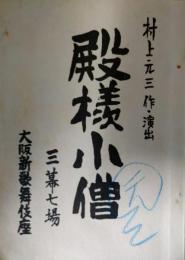 村上元三 作・演出
殿様小僧
三幕七場
大阪新歌舞伎座